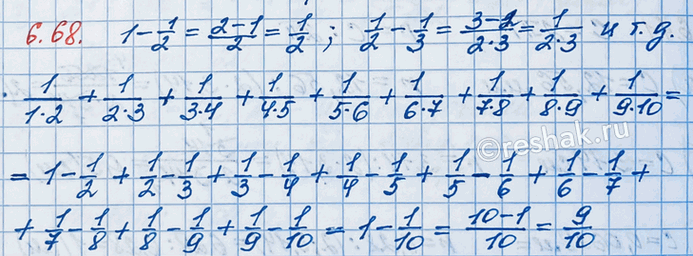 6.68. 1-1/2 = (2-1)/2 = 1/2 ; 1/2 - 1/3 = (3-2)/(2·3) = 1/(2·3) и т.д.
1/(1·2) + 1/(2·3) + 1/(3·4) + 1/(4·5) + 1/(5·6) + 1/(6·7) + 1/(7·8) + 1/(8·9) + 1/(9·10) =
= 1 - 1/2 + 1/2 - 1/3 + 1/3 - 1/4 + 1/4 - 1/5 + 1/5 - 1/6 + 1/6 - 1/7 +
+ 1/7 - 1/8 + 1/8 - 1/9 + 1/9 - 1/10 = 1 - 1/10 = (10-1)/10 = 9/10
©reshak.ru